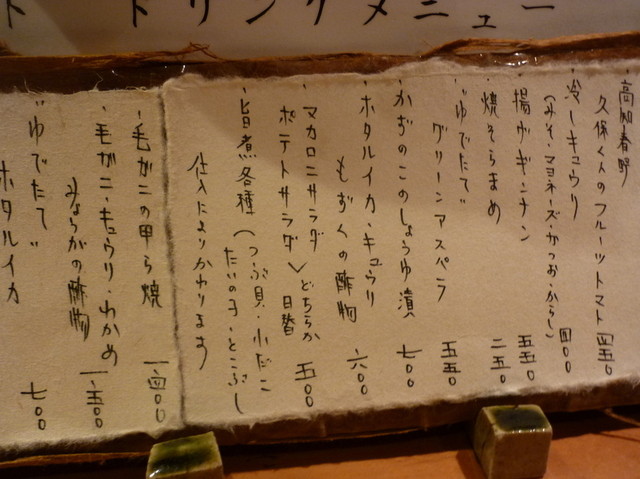 ドリンクメニュー
高知春野
久保くんのフルーツトマト 四五〇
冷しキュウリ
(みそ・マヨネーズ・かつお・からし) 四〇〇
揚げギンナン 五五〇
焼そらまめ 二五〇
"ゆでたて"
グリーンアスパラ 五五〇
かずのこのしょうゆ漬 七〇〇
ホタルイカ・キュウリ
もずくの酢物 六〇〇
マカロニサラダ
ポテトサラダ > どちらか日替 五〇〇
旨煮各種(つぶ貝・小だこ
たいの子・とこぶし
仕入によりかわります
毛がにの甲ら焼 一、四〇〇
毛ガニ・キュウリ・わかめ
みょうがの酢物 一、五〇〇
"ゆでたて"
ホタルイカ 七〇〇